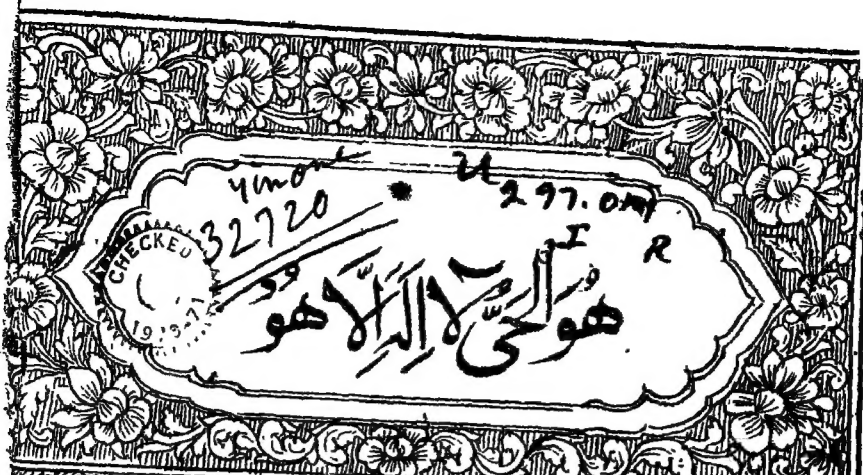 32720
U
297.0
I
R
CHECKED
هُوَ الْحَیُّ لَا اِلٰهَ اِلَّا هُوَ